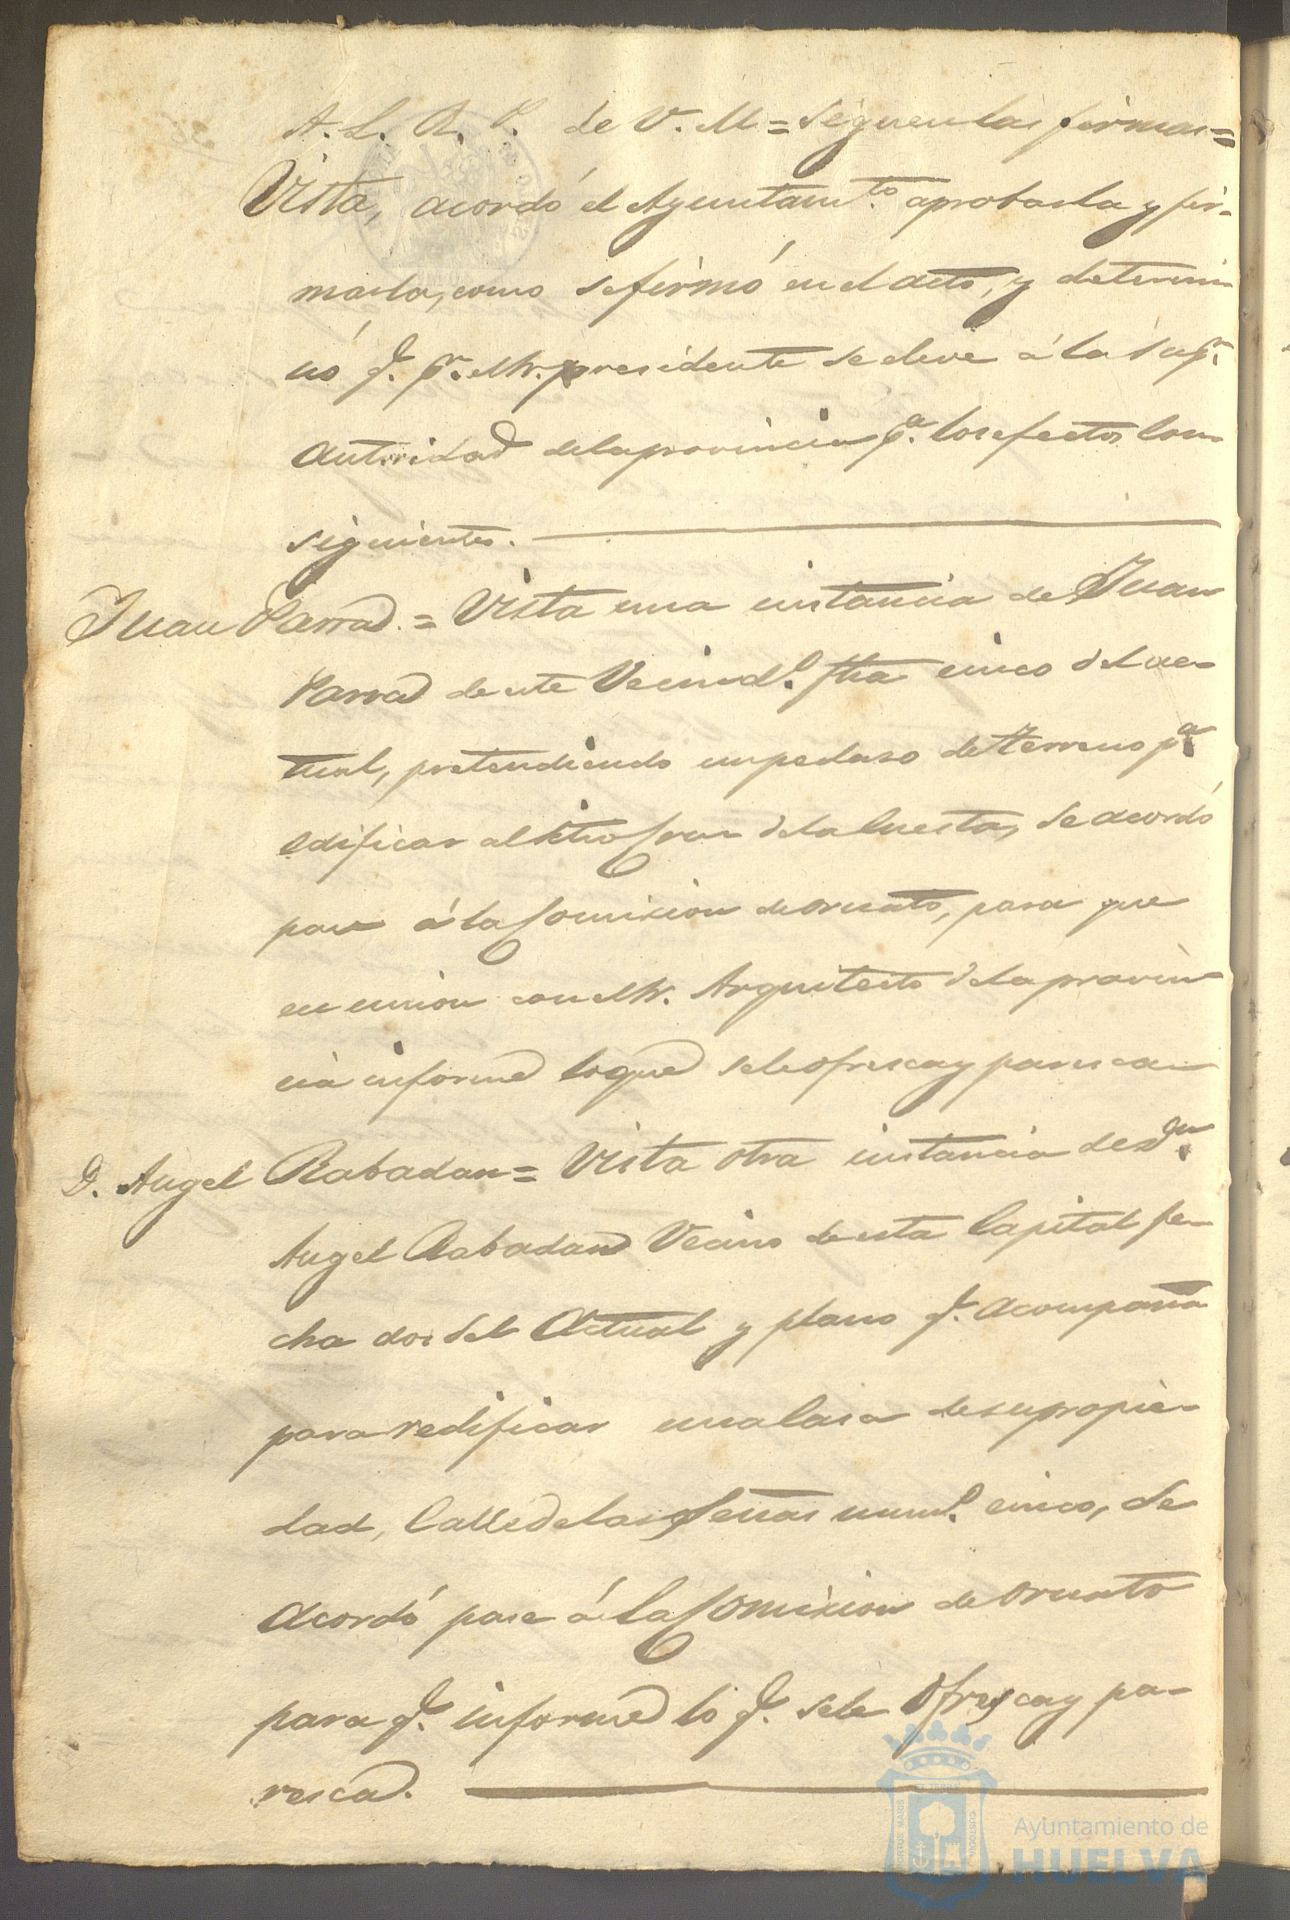 A. L. R. P. de V. M = Siguen las firmas =
Vista, acordó el Ayuntamto. aprobarla y fir-
marla, como se firmó en el acto, y determi-
nó q. pr. el Sr. presidente se eleve á la Supr.
Autoridad de la provincia pa. los efectos con-
siguientes.
Juan Parra. = Vista una instancia de Juan
Parra de este Vecindo. fha cinco del ac-
tual, pretendiendo un pedaso de Terreno pa.
edificar al sitio de la Cuesta, se acordó
pase á la Comixion de ornato, para que
en union con el Sr. Arquitecto de la provin
cia informe lo que se le ofresca y paresca
D. Angel Rabadan = Vista otra instancia de Dn.
Angel Rabadan Vecino de esta Capital fe-
cha dos del Actual y plano q. acompaña
para redificar una Casa de su propie-
dad, Calle de las numo. cinco, se
acordó pase á la Comixion de ornato
para q. informe lo q. se le Ofresca y pa-
resca.
Ayuntamiento de
HUELVA